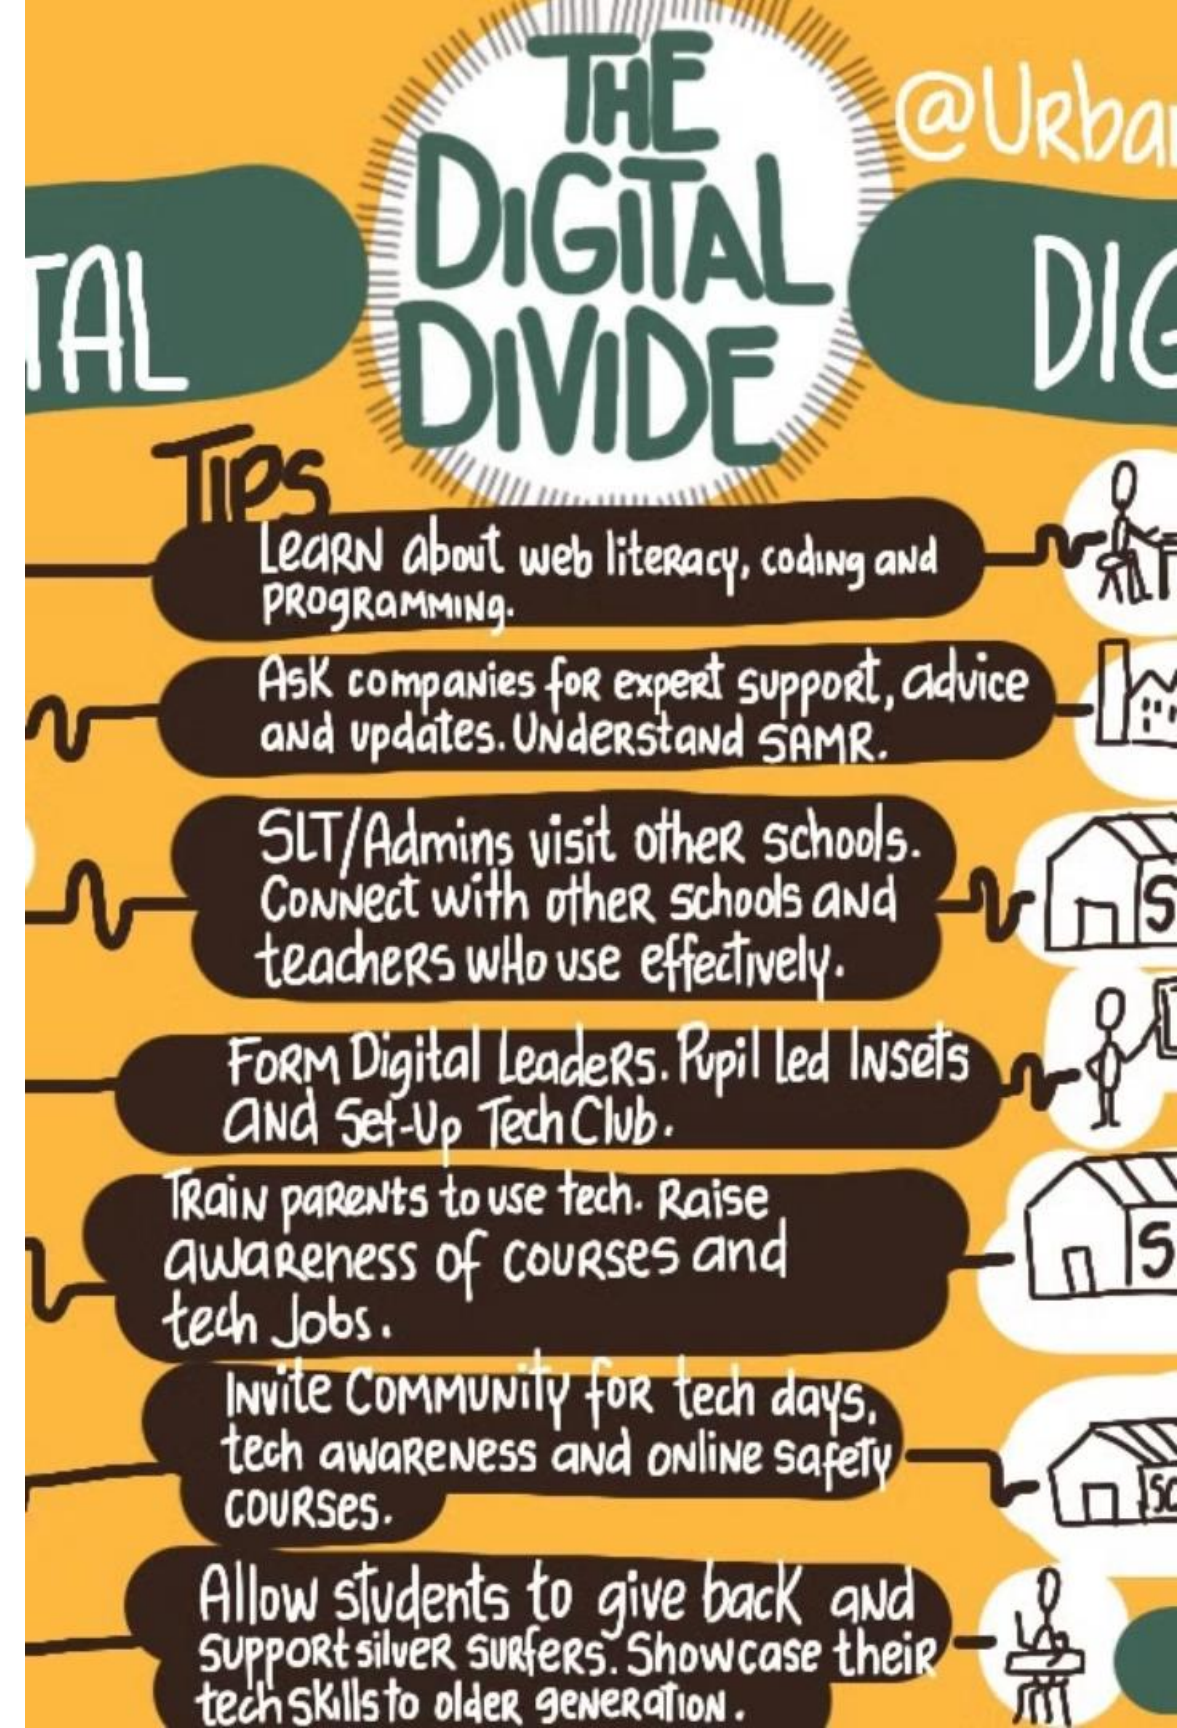 THE
DIGITAL
DIVIDE
TIPS
Learn about web literacy, coding and
programming.
Ask companies for expert support, advice
and updates. Understand SAMR.
SLT/Admins visit other schools.
Connect with other schools and
teachers who use effectively.
Form Digital Leaders. Pupil led Insets
and Set-Up Tech Club.
Train parents to use tech. Raise
awareness of courses and
tech Jobs.
Invite Community for tech days,
tech awareness and online safety
courses.
Allow students to give back and
support silver surfers. Showcase their
tech skills to older generation.